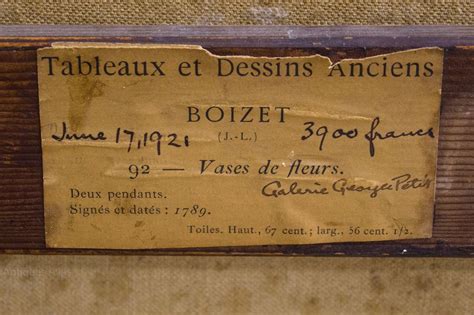 Tableaux et Dessins Anciens
BOIZET
(J.-L.)
June 17, 1921
3900 francs
92 — Vases de fleurs.
Galerie Georges Petit
Deux pendants.
Signés et datés : 1789.
Toiles. Haut., 67 cent.; larg., 56 cent. 1/2.